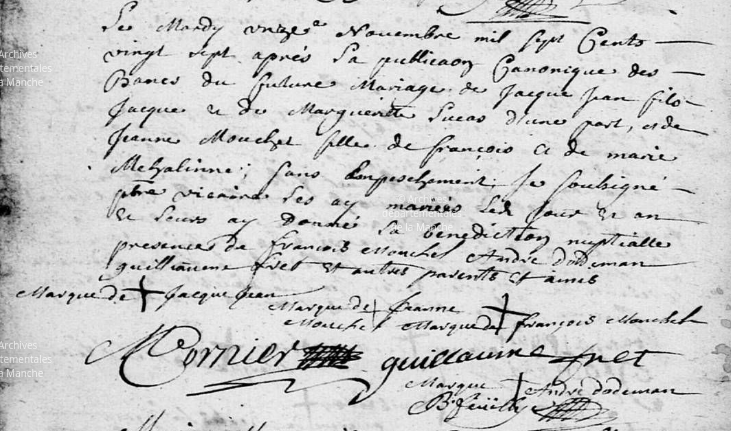 Le Mardy unze^e Novembre mil sept Cents
vingt sept aprés La publicaon Canonique des
Bancs du futur Mariage de Jacque Jean fils
Jacque & de Marguerite Lucas d'une part, et de
Jeanne Mouchel fille de françois & de marie
sans Empeschement, Je soubsigné
pbre vicaire Les ay mariés Led Jour & an
& Leurs ay donné La benediction nuptialle
presences de françois Mouchel André dodeman
guillaume fret Et autres parents Et amis
Marque de Jacque Jean
Marque de Jeanne
Mouchel
Marque de françois Mouchel
guillaume fret
Marque André dodeman
Archives
départementales
de la Manche
Archives
départementales
de la Manche
Archives
départementales
de la Manche